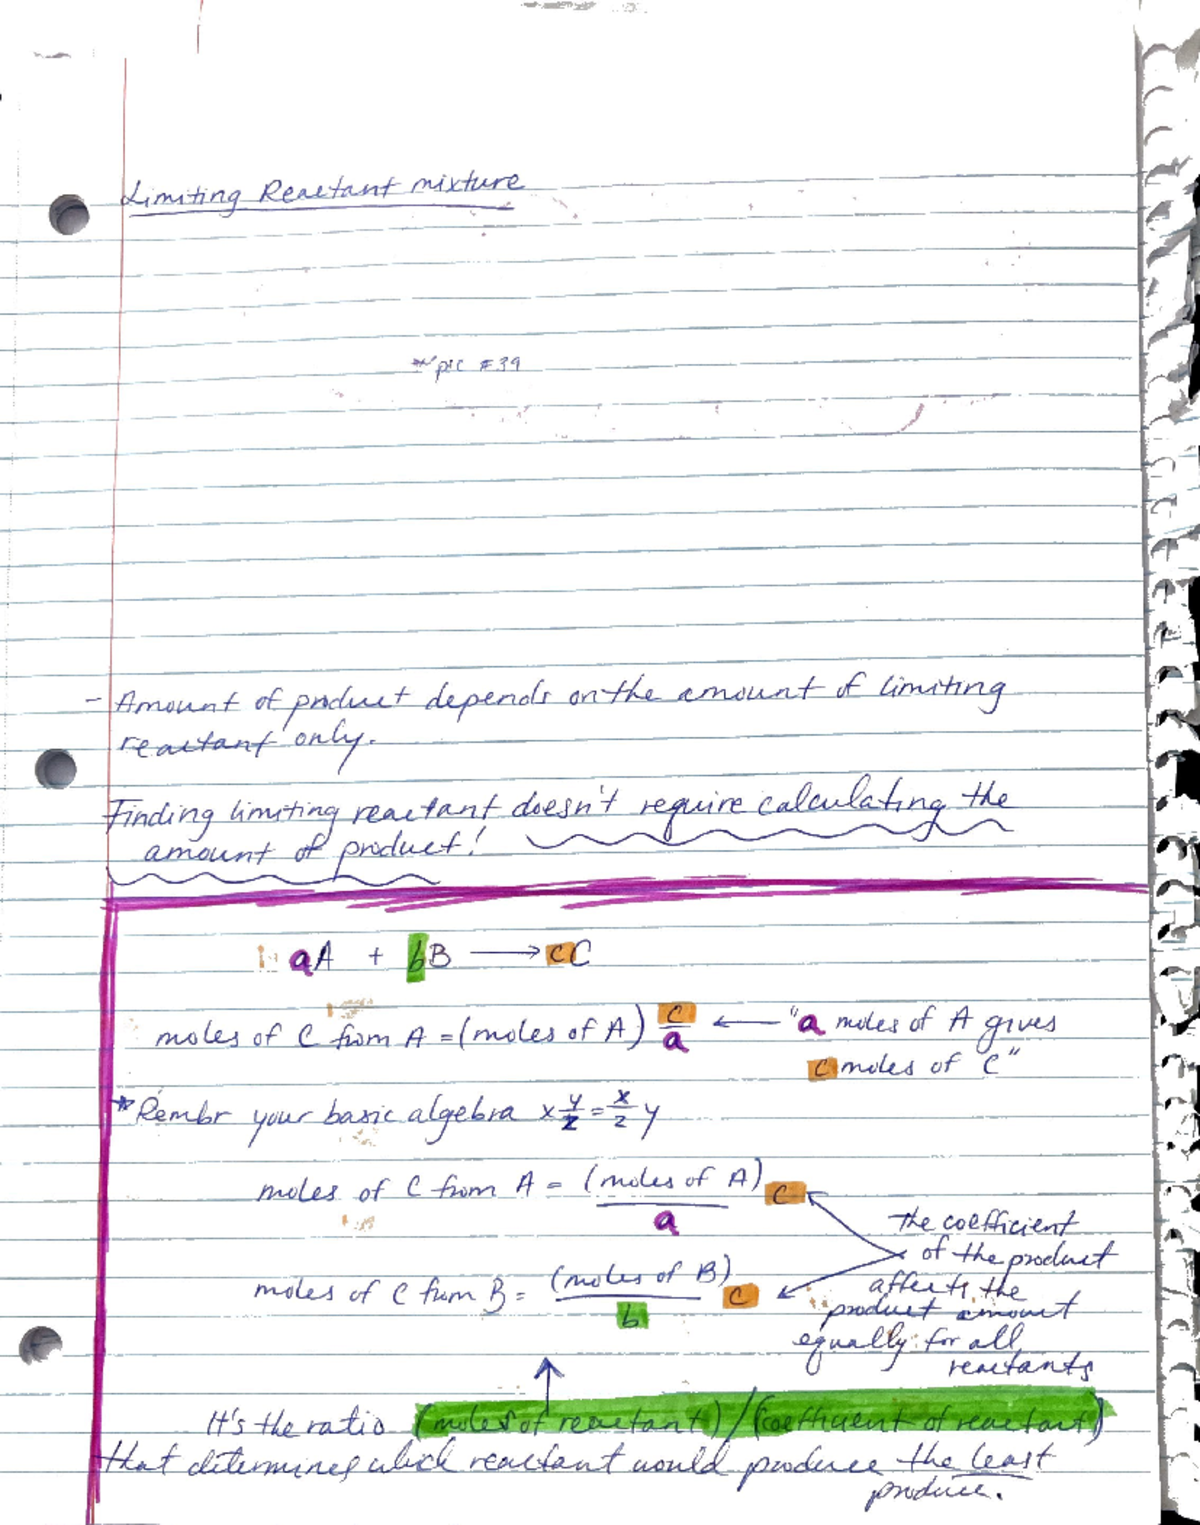 Limiting Reactant mixture
*pic #39
- Amount of product depends on the amount of limiting
reactant only.
Finding limiting reactant doesn't require calculating the
amount of product!
aA + bB → cC
moles of C from A = (moles of A) c/a ← "a moles of A gives
c moles of C"
*Rembr your basic algebra x y/z = x/z y
moles of C from A = (moles of A)/a c
moles of C from B = (moles of B)/b c
the coefficient
of the product
affects the
product amount
equally for all
reactants
It's the ratio (moles of reactant)/(coefficient of reactant)
that determines which reactant would produce the least
produce.